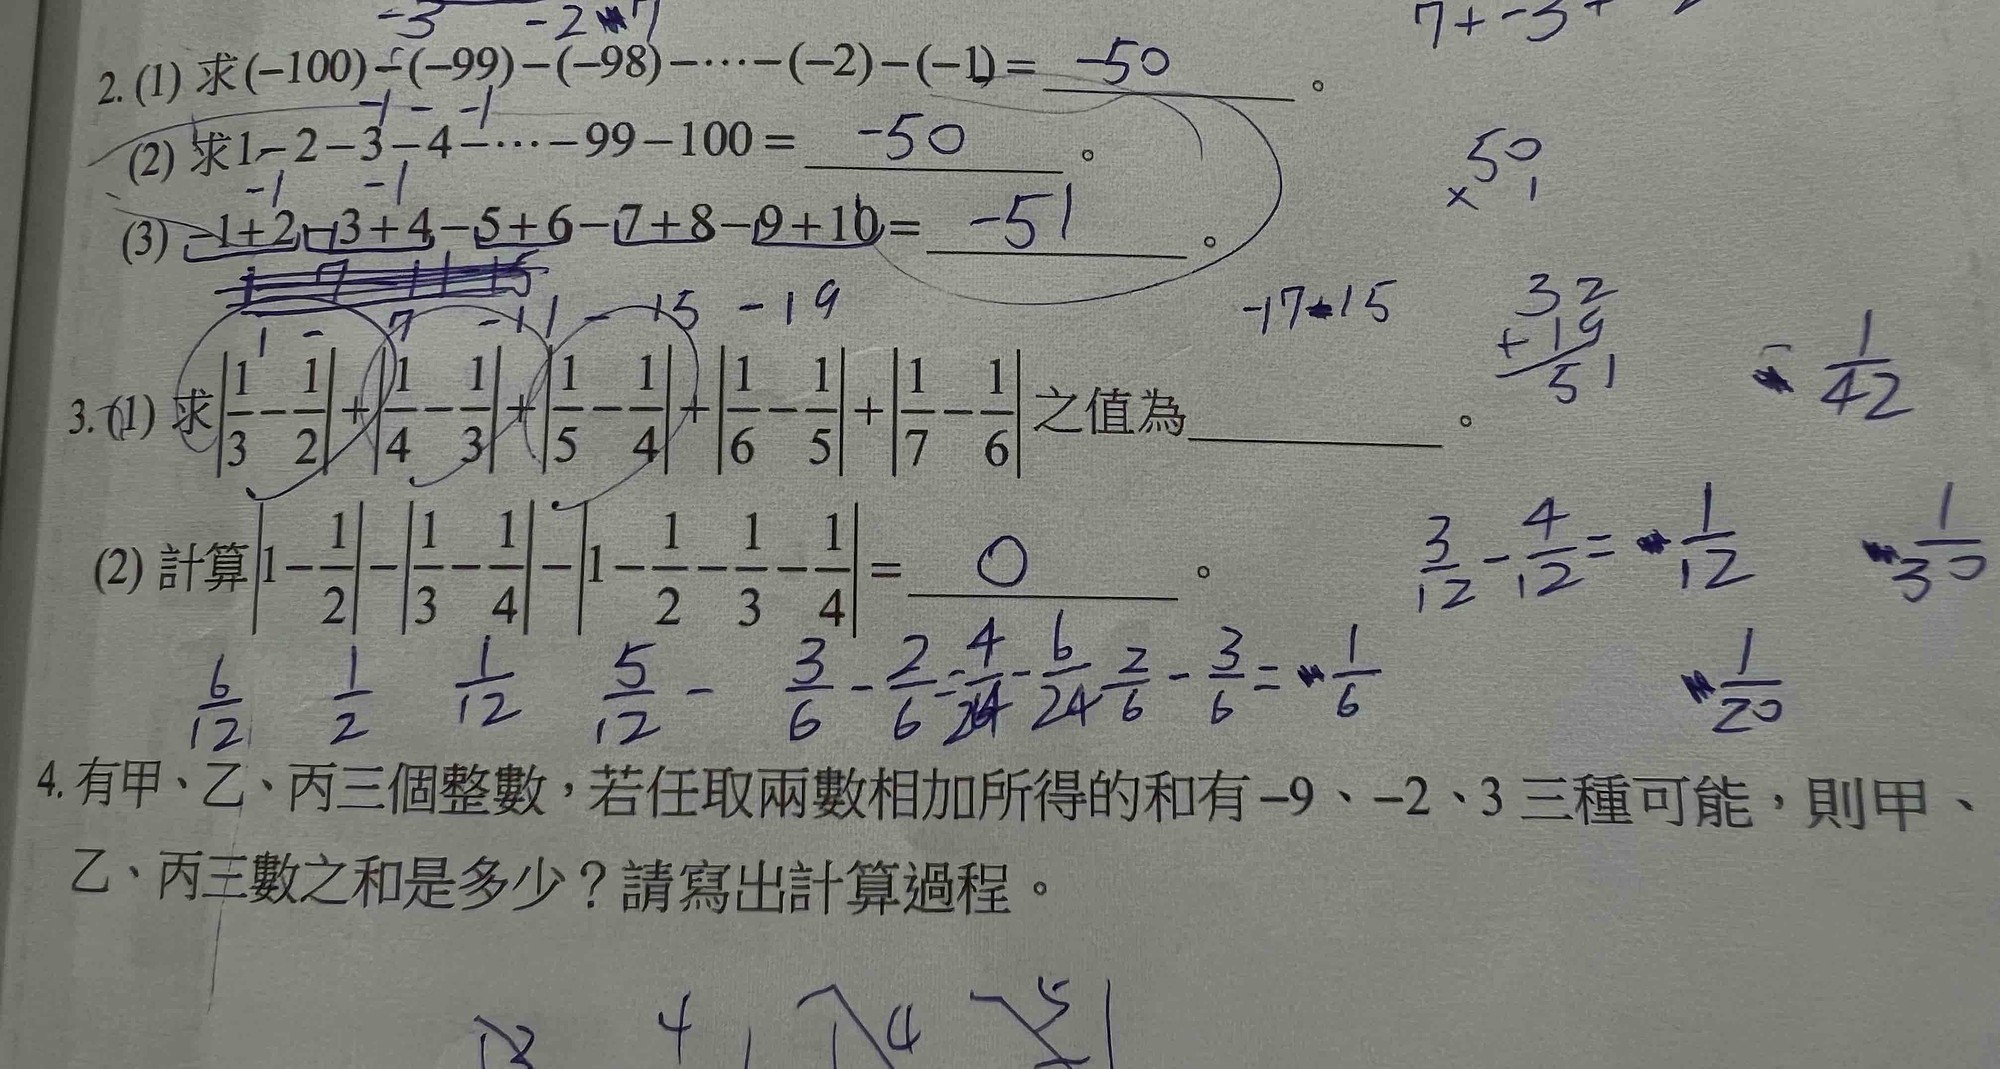 -3 -2 7 7+-3+
2. (1) 求(–100)–(–99)–(–98)–⋯–(–2)–(–1)= -50 。
-1 - -1
(2) 求1–2–3–4–⋯–99–100= -50 。
50
× 1
-1 -1
(3) –1+2–3+4–5+6–7+8–9+10= -51 。
1 - 7 -11 - 15 -19
-17 15
32
+19
51
3. (1) 求|1/3–1/2|+|1/4–1/3|+|1/5–1/4|+|1/6–1/5|+|1/7–1/6|之值為 。
1/42
(2) 計算|1–1/2|–|1/3–1/4|–|1–1/2–1/3–1/4|= 0 。
3/12-4/12= 1/12 1/30
6/12 1/2 1/12 5/12 - 3/6-2/6=4/24-6/24 2/6-3/6= 1/6 1/20
4. 有甲、乙、丙三個整數，若任取兩數相加所得的和有–9、–2、3三種可能，則甲、
乙、丙三數之和是多少？請寫出計算過程。
4 4 5